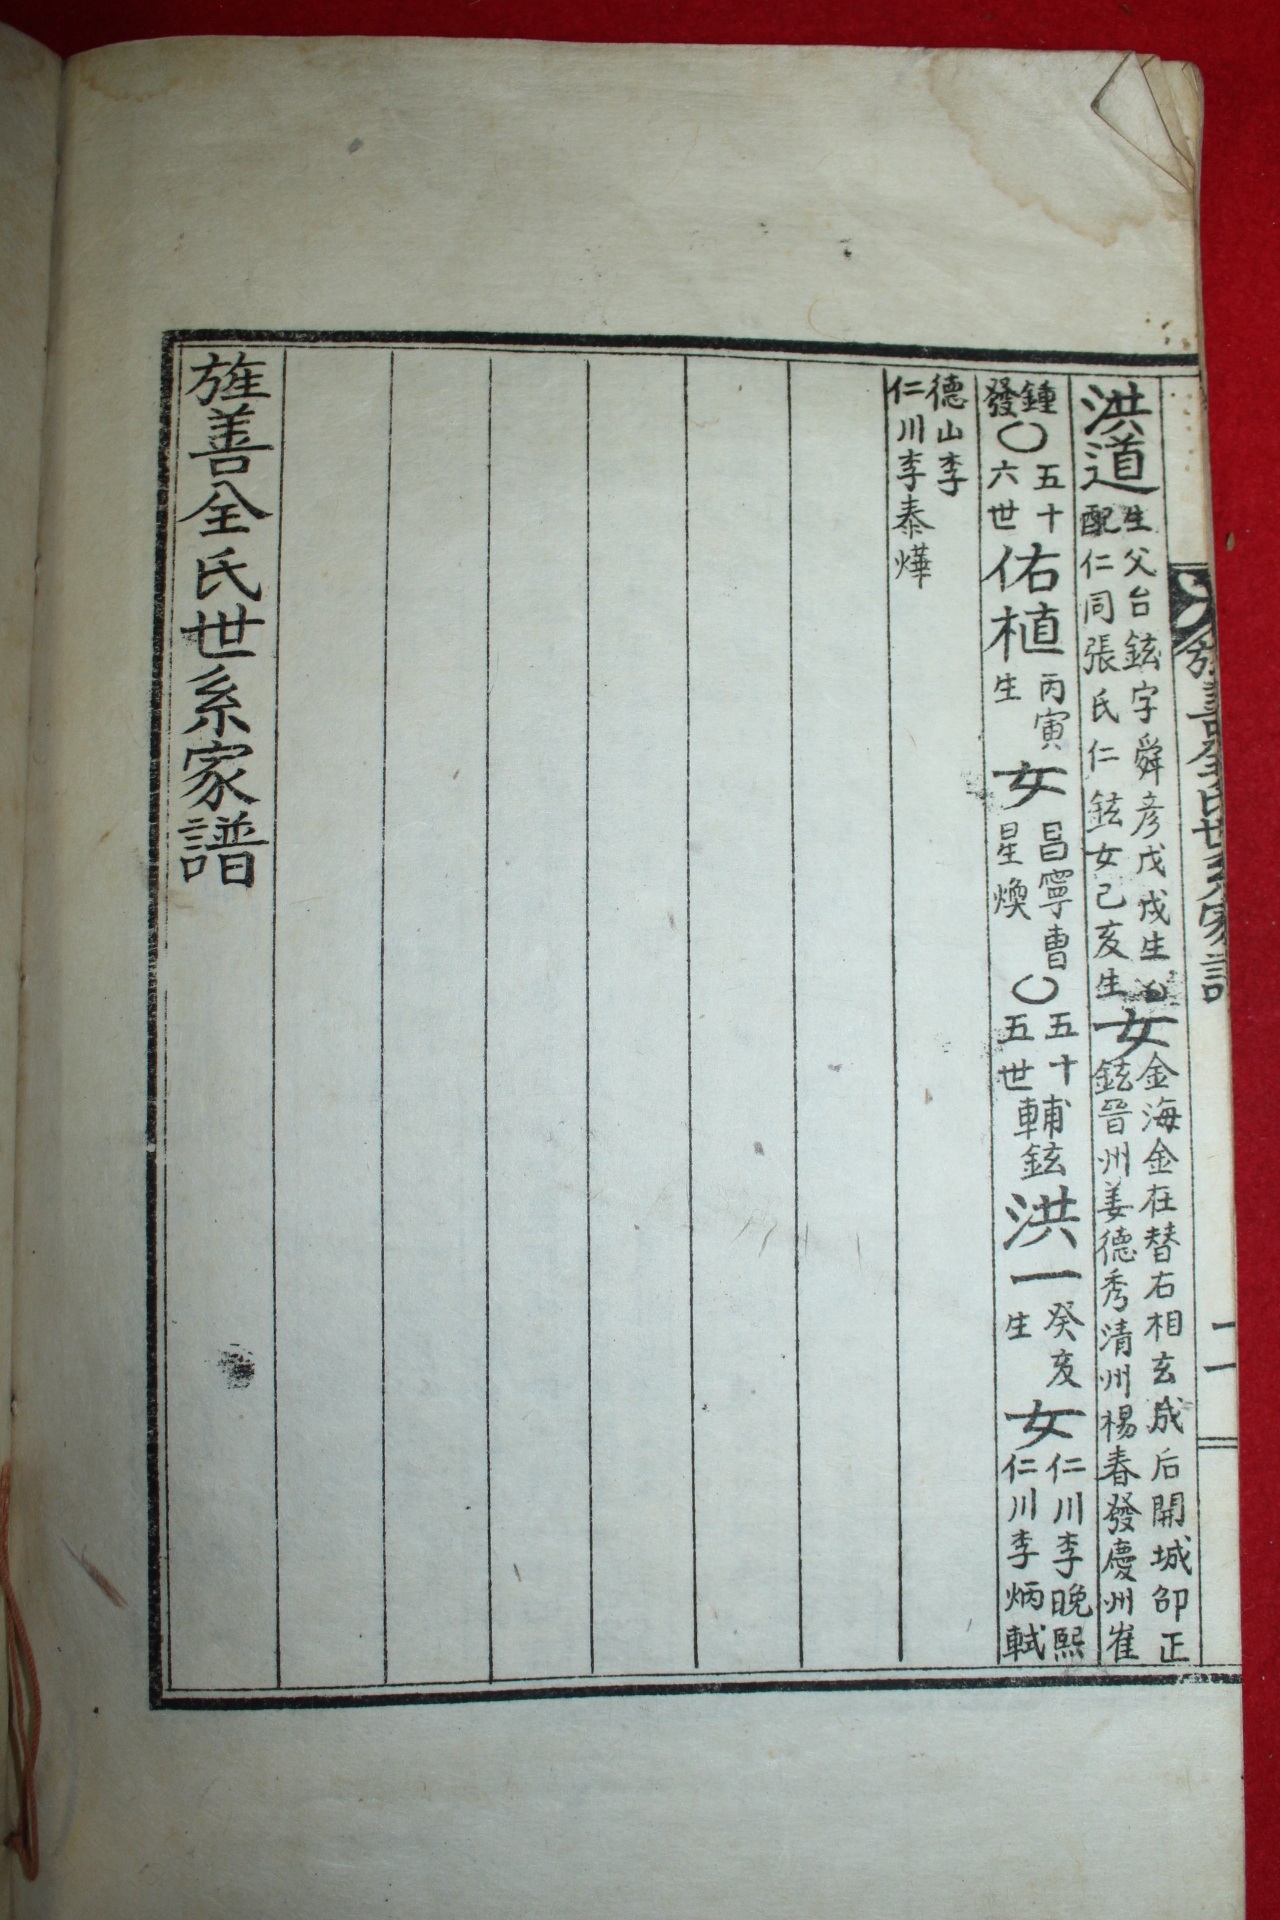 旌善全氏世系家譜 二
洪道
生父台鉉字舜彦戊戌生
配仁同張氏仁鉉女己亥生
女
金海金在替右相玄成后開城卲正
鉉晉州姜德秀清州楊春發慶州崔
鍾
發
○
五十
六世
佑植
丙寅
生
女
昌寧曺
星煥
○
五十
五世
輔鉉
洪一
癸亥
生
女
仁川李晩熙
仁川李炳軾
德山李
仁川李泰燁
旌善全氏世系家譜